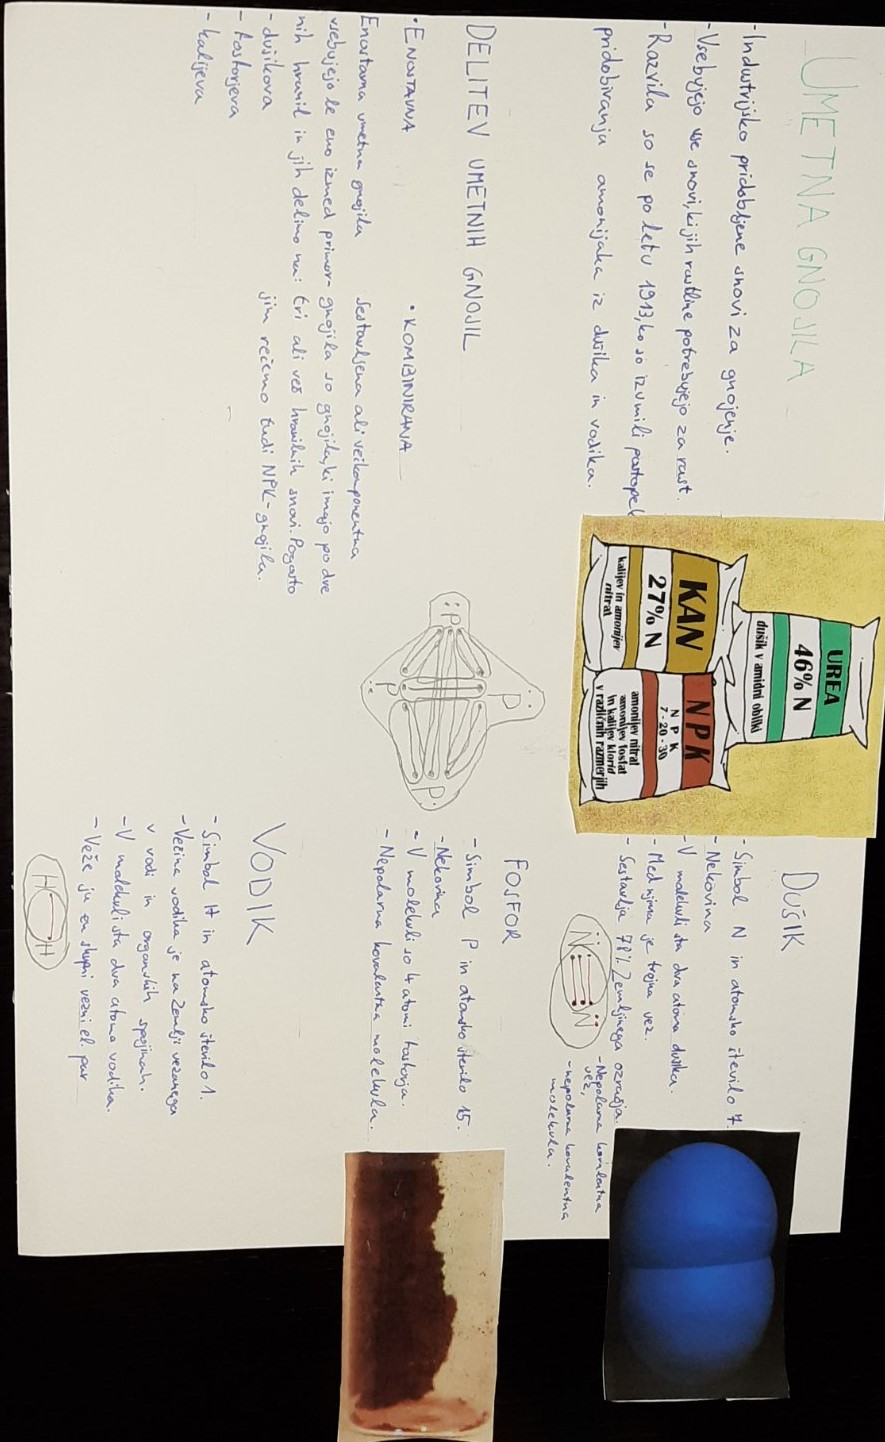 UMETNA GNOJILA
- Industrijsko pridobljene snovi za gnojenje.
- Vsebujejo vse snovi, ki jih rastline potrebujejo za rast.
- Razvila so se po letu 1913, ko so izumili postopek
pridobivanja amonijaka iz dušika in vodika.
DELITEV UMETNIH GNOJIL
• ENOSTAVNA
Enostavna umetna gnojila
vsebujejo le eno izmed primar-
nih hranil in jih delimo na:
- dušikova
- fosforjeva
- kalijeva
• KOMBINIRANA
Sestavljena ali večkomponentna
gnojila so gnojila, ki imajo po dve
tri ali več hranilnih snovi. Pogosto
jim rečemo tudi NPK-gnojila.
UREA
46% N
dušik v amidni obliki
KAN
27% N
kalijev in amonijev
nitrat
NPK
N P K
7 - 20 - 30
amonijev nitrat
amonijev fosfat
in kalijev klorid
v različnih razmerjih
P
P
P
P
DUŠIK
- Simbol N in atomsko število 7.
- Nekovina
- V molekuli sta dva atoma dušika.
- Med njima je trojna vez.
- Sestavlja 78% Zemljinega ozračja.
N N
- Nepolarna kovalentna
vez,
- nepolarna kovalentna
molekula.
FOSFOR
- Simbol P in atomsko število 15.
- Nekovina
- V molekuli so 4 atomi fosforja.
- Nepolarna kovalentna molekula.
VODIK
- Simbol H in atomsko število 1.
- Večina vodika je na Zemlji vezanega
v vodi in organskih spojinah.
- V molekuli sta dva atoma vodika.
- Veže ju en skupni vezni el. par
H H